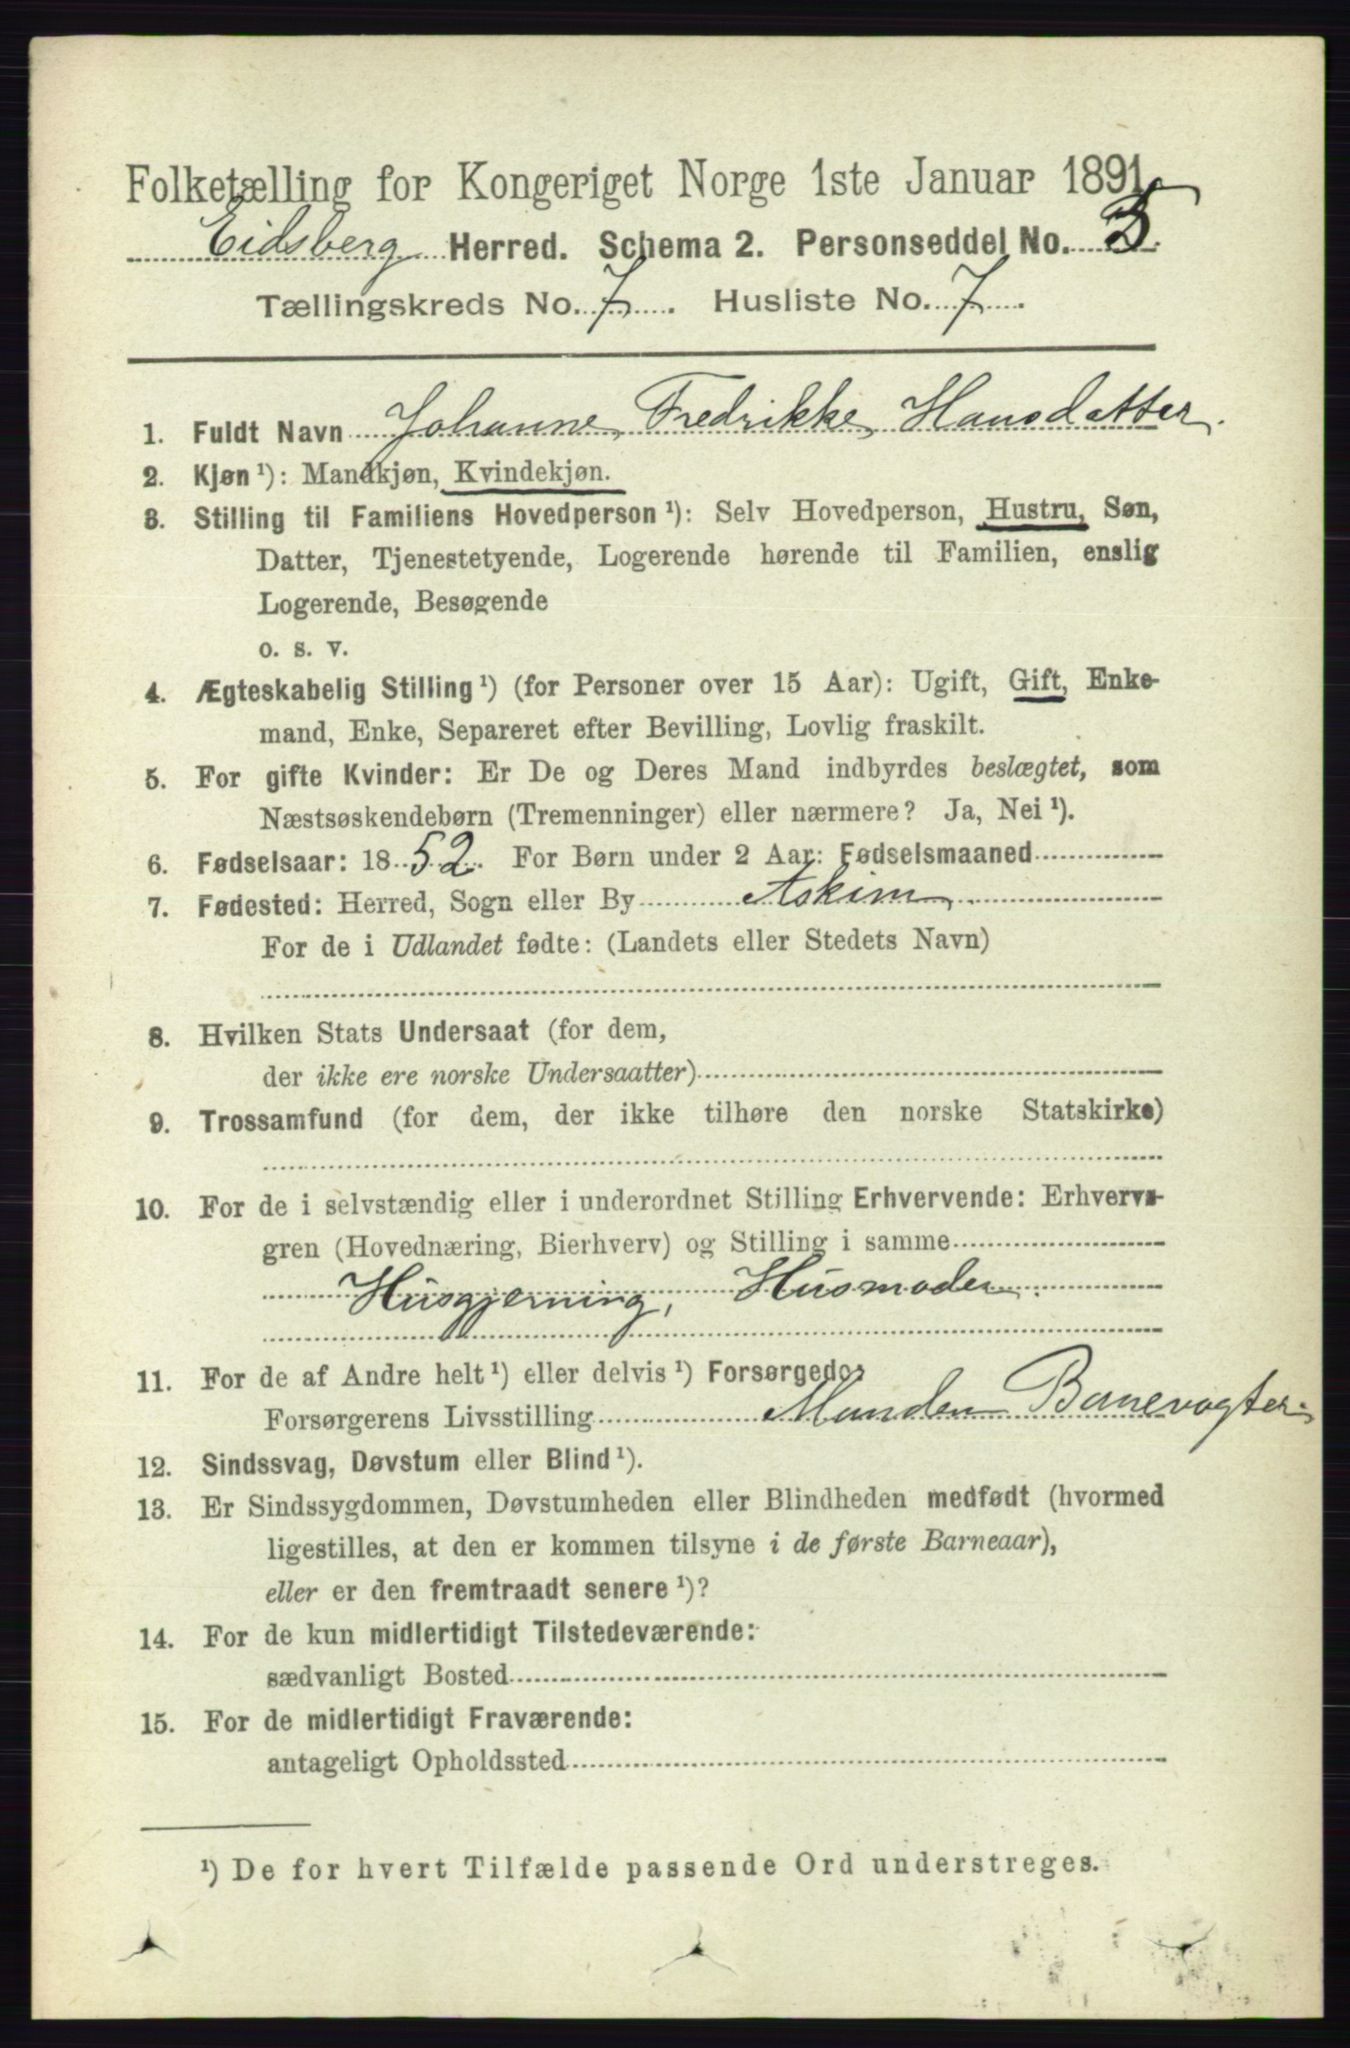 Folketælling for Kongeriget Norge 1ste Januar 1891.
Eidsberg Herred. Schema 2. Personseddel No. 5.
Tællingskreds No. 7. Husliste No. 7.
1. Fuldt Navn Johanne Fredrikke Hansdatter.
2. Kjøn¹): Mandkjøn, Kvindekjøn.
3. Stilling til Familiens Hovedperson¹): Selv Hovedperson, Hustru, Søn,
Datter, Tjenestetyende, Logerende hørende til Familien, enslig
Logerende, Besøgende
o. s. v.
4. Ægteskabelig Stilling¹) (for Personer over 15 Aar): Ugift, Gift, Enke-
mand, Enke, Separeret efter Bevilling, Lovlig fraskilt.
5. For gifte Kvinder: Er De og Deres Mand indbyrdes beslægtet, som
Næstsøskendebørn (Tremenninger) eller nærmere? Ja, Nei¹).
6. Fødselsaar: 1852. For Børn under 2 Aar: Fødselsmaaned
7. Fødested: Herred, Sogn eller By Askim.
For de i Udlandet fødte: (Landets eller Stedets Navn)
8. Hvilken Stats Undersaat (for dem,
der ikke ere norske Undersaatter)
9. Trossamfund (for dem, der ikke tilhøre den norske Statskirke)
10. For de i selvstændig eller i underordnet Stilling Erhvervende: Erhvervs-
gren (Hovednæring, Bierhverv) og Stilling i samme
Husgjerning, Husmoder.
11. For de af Andre helt¹) eller delvis¹) Forsørgede:
Forsørgerens Livsstilling Manden Banevogter.
12. Sindssvag, Døvstum eller Blind¹).
13. Er Sindssygdommen, Døvstumheden eller Blindheden medfødt (hvormed
ligestilles, at den er kommen tilsyne i de første Barneaar),
eller er den fremtraadt senere¹)?
14. For de kun midlertidigt Tilstedeværende:
sædvanligt Bosted
15. For de midlertidigt Fraværende:
antageligt Opholdssted
¹) De for hvert Tilfælde passende Ord understreges.